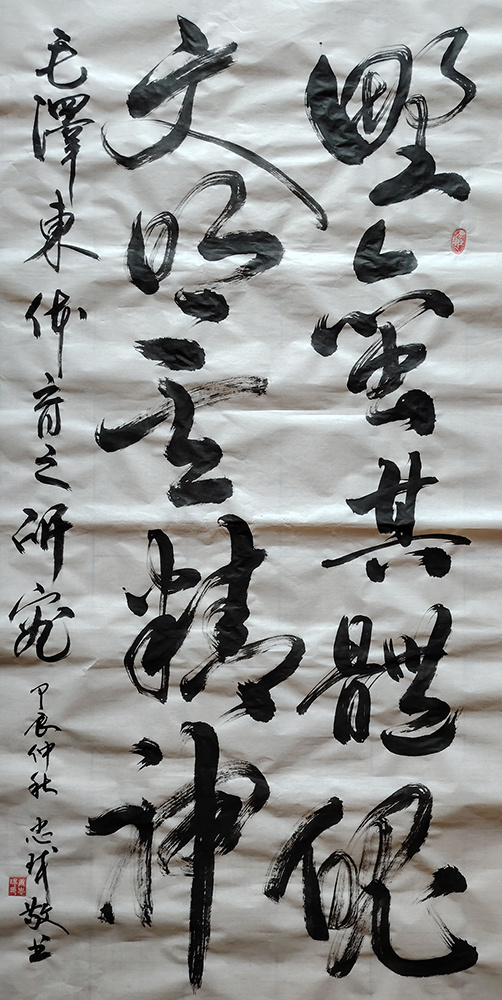 野蛮其體魄
文明其精神
毛澤東体育之研究
甲辰仲秋 忠球敬书